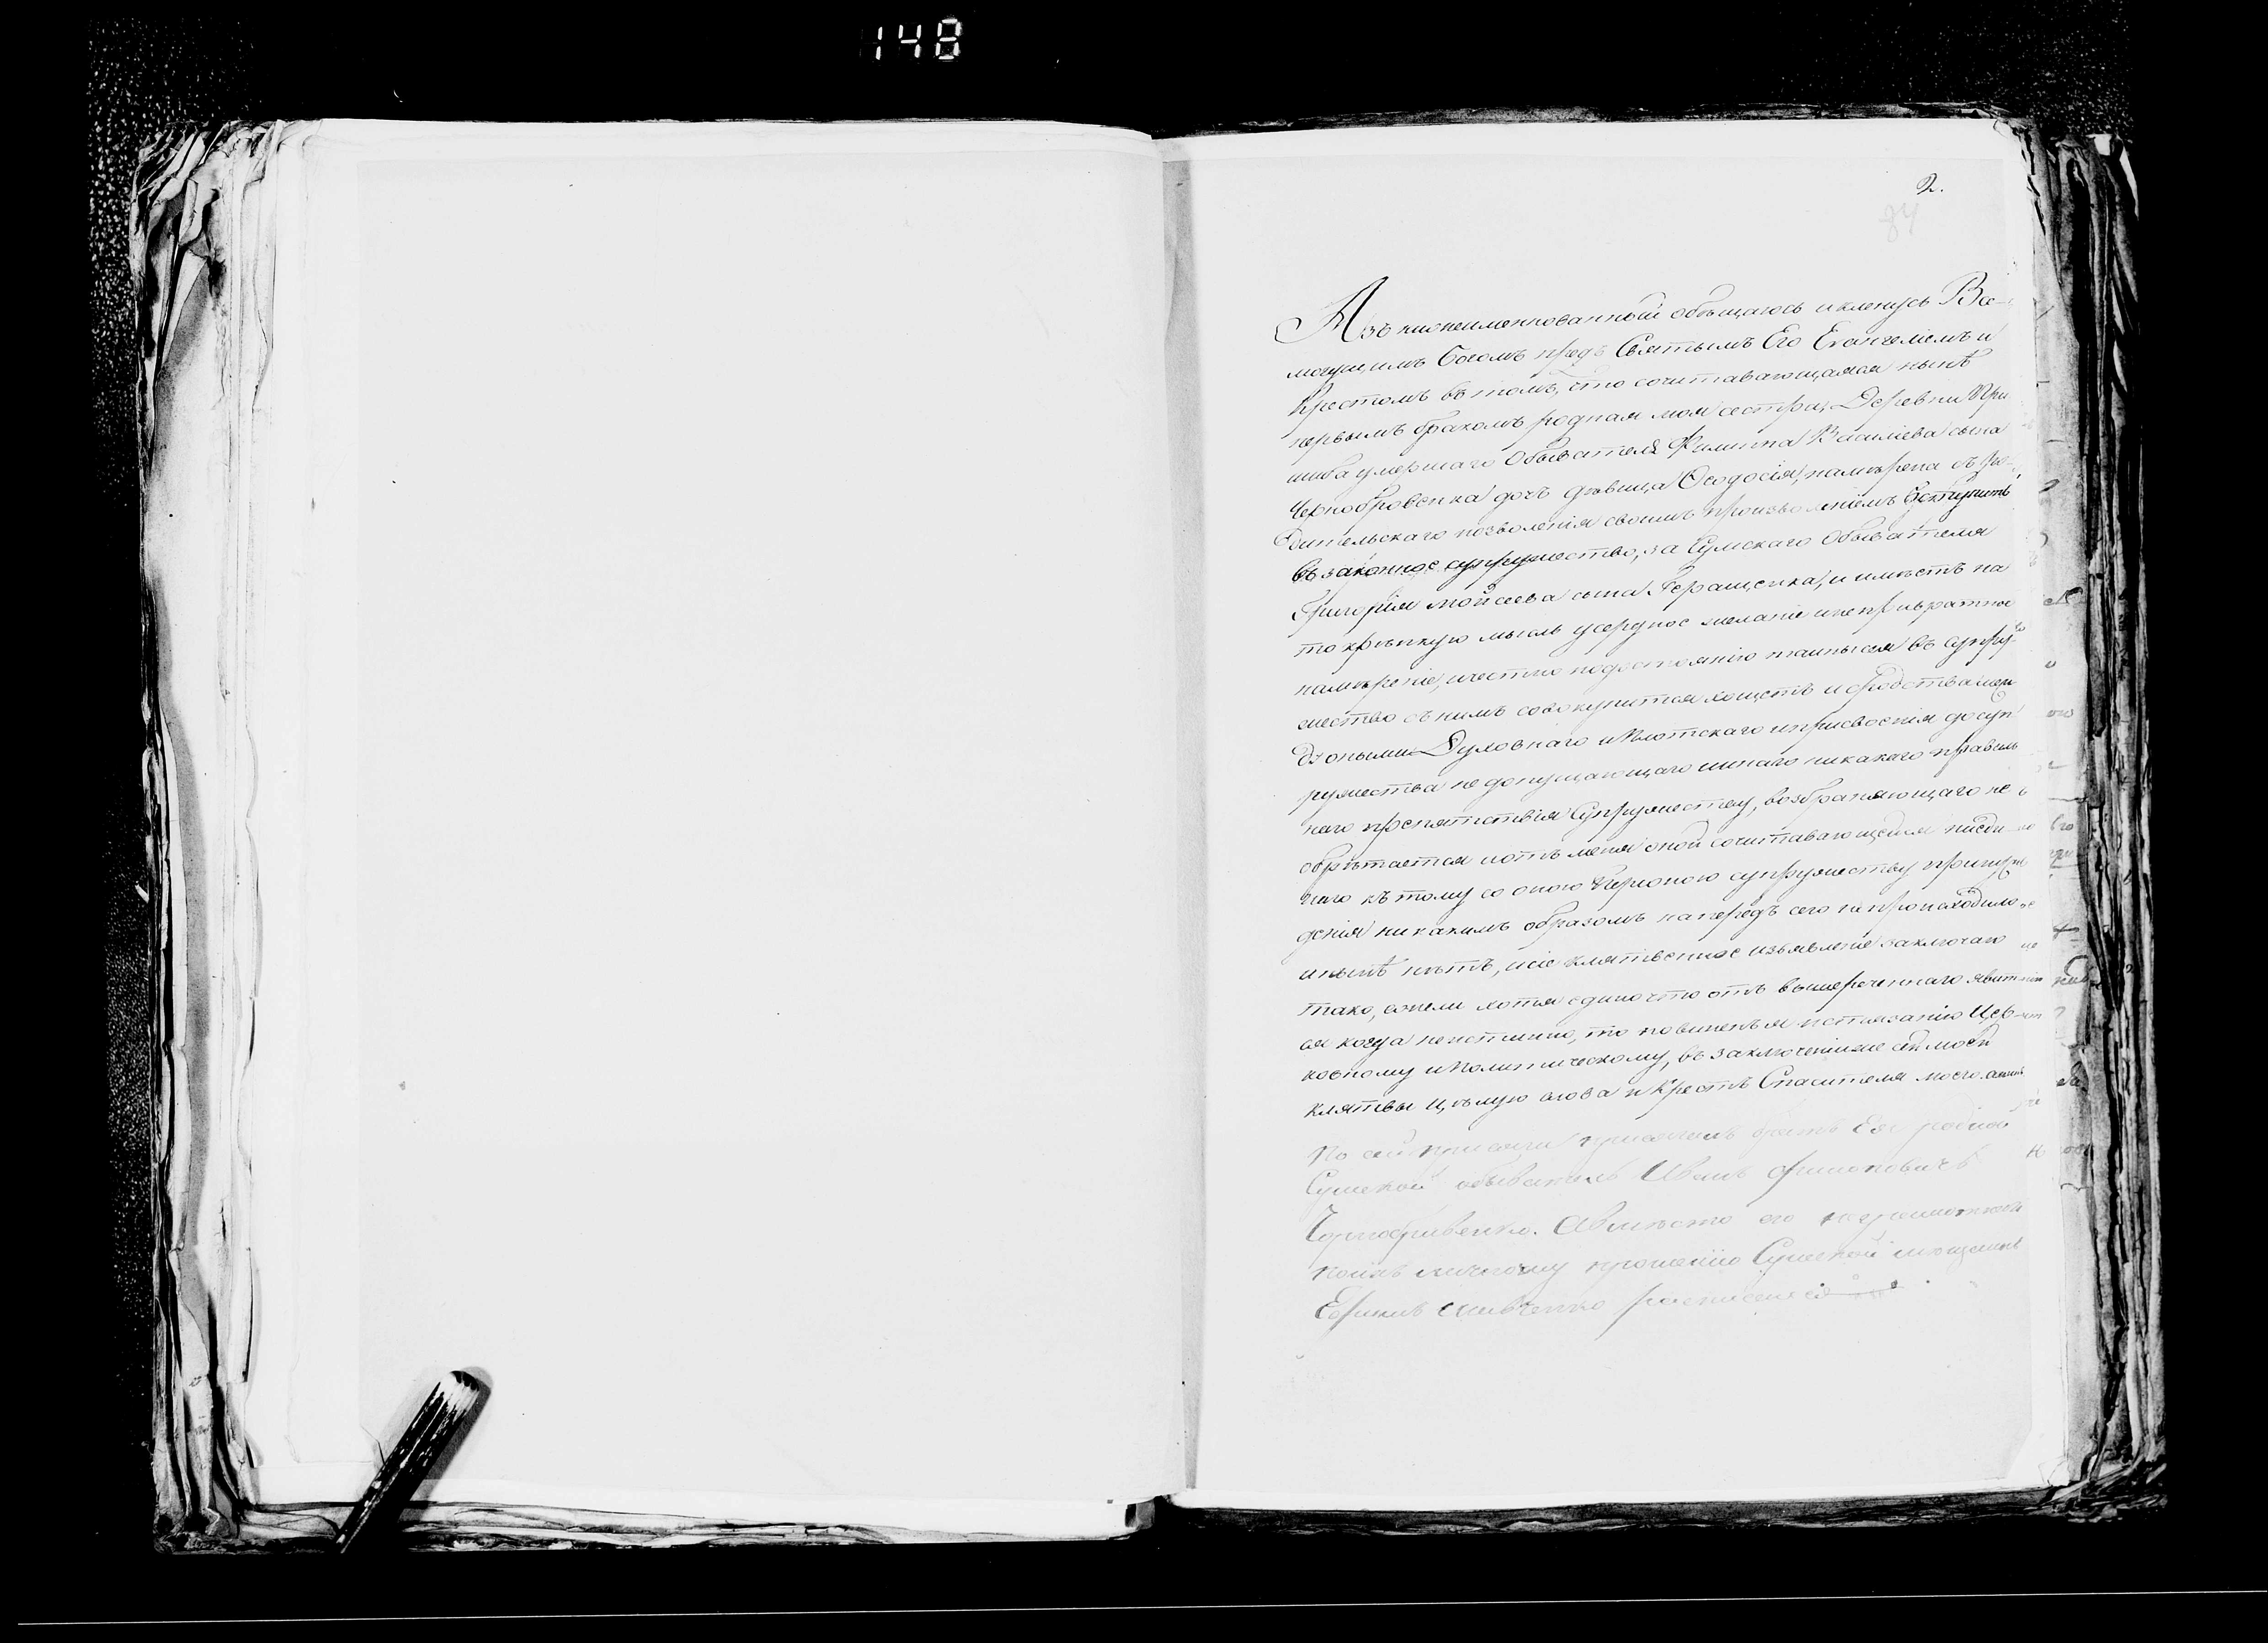 148
2.
84
Азъ нижеименнованный обѣщаюсь и кленусь Все-
могущимъ Богомъ предъ Святымъ Его Евангелiемъ и
Крестомъ въ томъ, что сочитавающаяся нынѣ
первымъ бракомъ родная моя сестра, Деревни При
шиба умершаго Обывателя Филиппа Василiева сына
Чернобровенка дочъ дѣвица Ѳеодосiя, намѣрена съ ро-
дительскаго позволенiя своимъ произволенiемъ вступить
въ законное супружество, за Сумскаго Обывателя
Григорiя Мойсеева сына Геращенка, и имѣетъ на
то крѣпкую мысль усердное желанiе и непревратное
намѣренiе, и честно по достоянiю тайны сея въ супру-
жество съ нимъ совокупится хощетъ и сродства меж
дъ оными Духовнаго и Плотскаго и присвоенiя до суп
ружества не допущающаго и инаго никакаго правиль
наго препятствiя Супружеству, возбраняющаго не
обрѣтается и отъ меня оной сочитавающейся ниеди-
наго къ тому со оною Персоною супружеству принуж
денiя никакимъ образомъ напередъ сего не происходило
и нынѣ нѣтъ, и сiе клятвенное изъявленiе заключаю
тако, ежели хотя едино что отъ вышереченнаго явит
ся когда неистинно, то повиненъ я истязанiю Цер-
ковному и Политическому, въ заключенiи же сей моей
клятвы цѣлую слова и Крестъ Спасителя моего. аминь
По сей присяги присягалъ братъ Ея родной
Сумской обыватель Иванъ Филиповичъ
Чернобривенко. А вмѣсто его неграмотнаго
по ихъ личному прошенiю Сумской мещанинъ
Ефимъ Шевченко росписался